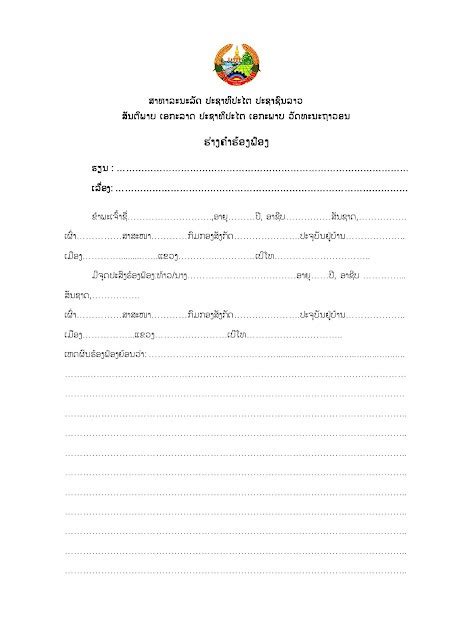 ສາທາລະນະລັດ ປະຊາທິປະໄຕ ປະຊາຊົນລາວ
ສັນຕິພາບ ເອກະລາດ ປະຊາທິປະໄຕ ເອກະພາບ ວັດທະນະຖາວອນ
ຮ່າງຄຳຮ້ອງຟ້ອງ
ຮຽນ : ……………………………………………………………………………
ເລື່ອງ: ……………………………………………………………………………
ຂ້າພະເຈົ້າຊື່……………………….,ອາຍຸ………ປີ, ອາຊີບ……………ສັນຊາດ,……………
ເຜົ່າ……………ສາສະໜາ…………ກົມກອງສັງກັດ…………………ປະຈຸບັນຢູ່ບ້ານ………………..
ເມືອງ…………................ແຂວງ…………………….ເບີໂທ…………………………..
ມີຈຸດປະສົງຮ້ອງຟ້ອງ:ທ້າວ/ນາງ………………………………ອາຍຸ……ປີ, ອາຊີບ …………...
ສັນຊາດ,…………….
ເຜົ່າ……………ສາສະໜາ…………ກົມກອງສັງກັດ…………………ປະຈຸບັນຢູ່ບ້ານ………………..
ເມືອງ……………….ແຂວງ…………………….ເບີໂທ…………………………..
ເຫດຜົນຮ້ອງຟ້ອງຍ້ອນວ່າ: ……………………………………………………………………
……………………………………………………………………………………………………..
……………………………………………………………………………………………………..
……………………………………………………………………………………………………..
……………………………………………………………………………………………………..
……………………………………………………………………………………………………..
……………………………………………………………………………………………………..
……………………………………………………………………………………………………..
……………………………………………………………………………………………………..
……………………………………………………………………………………………………..
……………………………………………………………………………………………………..
……………………………………………………………………………………………………..